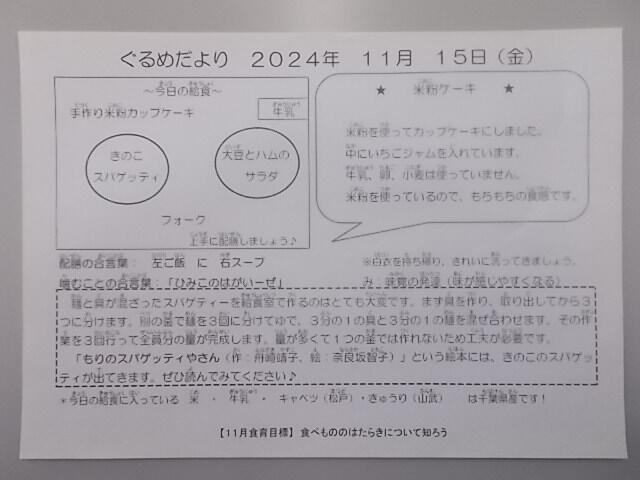 ぐるめだより 2024年 11月 15日(金)
~今日の給食~
手作り米粉カップケーキ
牛乳
きのこ
スパゲッティ
大豆とハムの
サラダ
フォーク
上手に配膳しましょう♪
★ 米粉ケーキ ★
米粉を使ってカップケーキにしました。
中にいちごジャムを入れています。
牛乳、卵、小麦は使っていません。
米粉を使っているので、もちもちの食感です。
配膳の合言葉: 左ご飯 に 右スープ
※白衣を持ち帰り、きれいに洗ってきましょう。
噛むことの合言葉:「ひみこのはがいーぜ」
み:味覚の発達(味が感じやすくなる)
麺と具が混ざったスパゲティーを給食室で作るのはとても大変です。まず具を作り、取り出してから3
つに分けます。別の釜で麺を3回に分けてゆで、3分の1の具と3分の1の麺を混ぜ合わせます。その作
業を3回行って全員分の量が完成します。量が多くて1つの釜では作れないため工夫が必要です。
「もりのスパゲッティやさん(作:舟崎靖子、絵:奈良坂智子)」という絵本には、きのこのスパゲッ
ティが出てきます。ぜひ読んでみてください♪
*今日の給食に入っている 米 ・ 牛乳 ・ キャベツ(松戸)・きゅうり(山武) は千葉県産です!
【11月食育目標】 食べもののはたらきについて知ろう